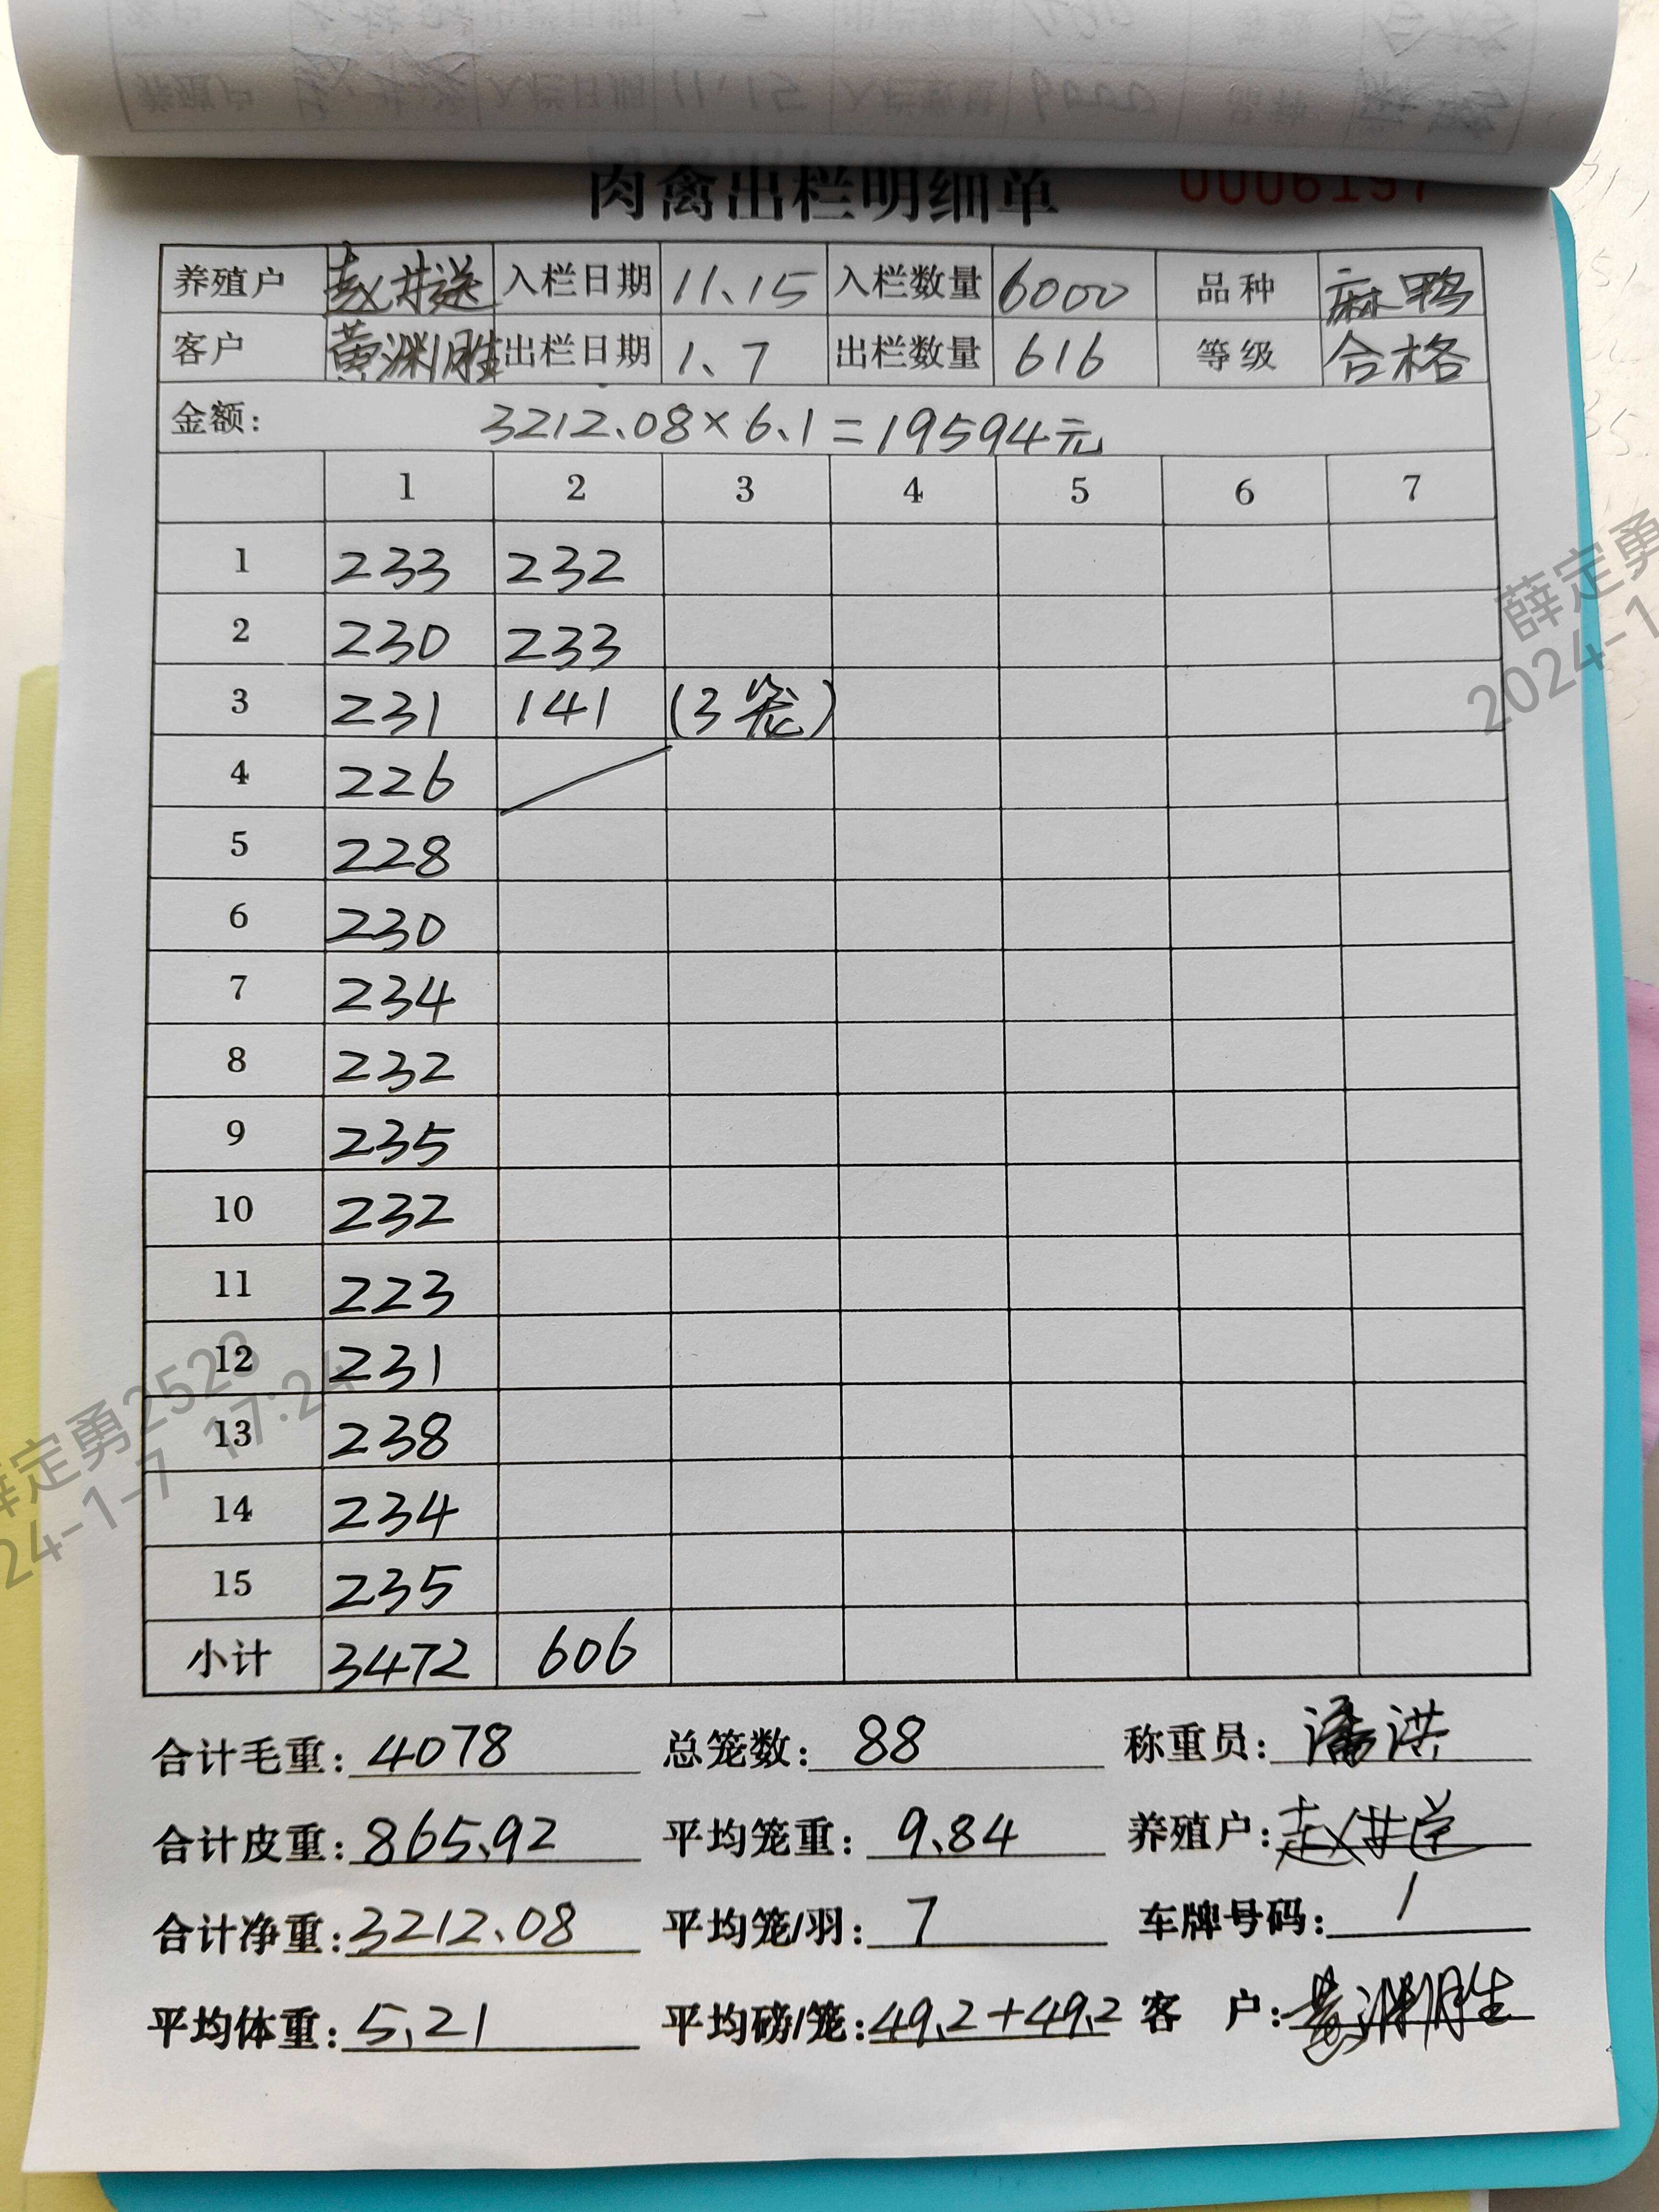 肉禽出栏明细单 0006197
养殖户 赵井送 入栏日期 11.15 入栏数量 6000 品种 麻鸭
客户 黄渊胜 出栏日期 1.7 出栏数量 616 等级 合格
金额: 3212.08×6.1=19594元
1 2 3 4 5 6 7
1 233 232
2 230 233
3 231 141 (3笼)
4 226
5 228
6 230
7 234
8 232
9 235
10 232
11 223
12 231
13 238
14 234
15 235
小计 3472 606
合计毛重: 4078 总笼数: 88 称重员: 潘洪
合计皮重: 865.92 平均笼重: 9.84 养殖户: 赵井
合计净重: 3212.08 平均笼/羽: 7 车牌号码: /
平均体重: 5.21 平均磅/笼: 49.2+49.2 客 户: 黄渊胜
薛定勇
2024-1
薛定勇2523
24-1-7 17:24